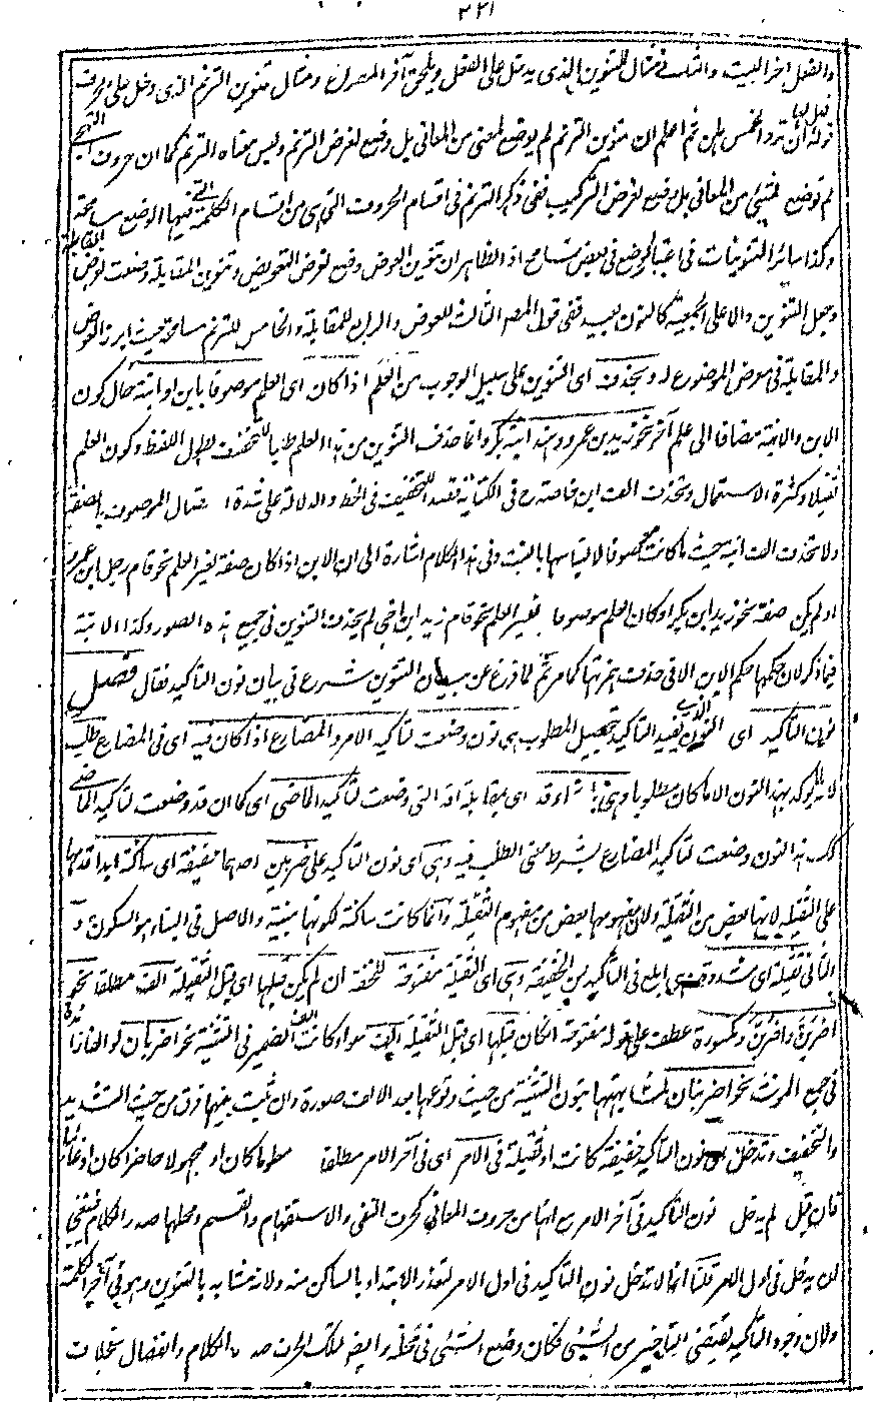 ٢٢١
والفعل اخر البيت والثالث مثال للتنوين الذى يدخل على الفعل ويلحق آخر المصراع ومثال تنوين الترنم الذى دخل على حرف
قوله ان ترد الخمس ابن ثم اعلم ان تنوين الترنم لم يوضع لمعنى من المعانى بل وضع لغرض الترنم وليس معناه الترنم كما ان حروف التهجى
لم توضع لشئ من المعانى بل وضع لغرض التركيب ففى ذكر الترنم فى اقسام الحروف التى هى من اقسام الكلمة التى فيها الوضع مسامحة
وكذا سائر التنوينات فى اعتبار الوضع فى بعض تسامح اذ الظاهر ان تنوين العوض وضع لغرض التعويض وتنوين المقابلة وضعت لغرض المقابلة
وجعل التنوين دالا على الجمعية كالنون بعيد ففى قول المصـ الثالث للعوض والرابع للمقابلة والخامس للترنم مسامحة حيث ابرز العوض
والمقابلة فى معرض الموضوع له ويحذف اى التنوين على سبيل الوجوب من العلم اذا كان اى العلم موصوفا بابن او ابنة حال كون
الابن والابنة مضافا الى علم آخر نحو زيد بن عمرو وهند ابنة بكر وانما حذف التنوين من هذا العلم طلبا للتخفيف لطول اللفظ وكون العلم
ثقيلا وكثرة الاستعمال وتحذف الف ابن خاصة ح فى الكتابة لقصد التخفيف فى الخط والدلالة على شدة اتصال الموصوف بالصفة
ولا تحذف الف ابنة حيث ما كانت مخصوصا لالتباسها بالبنت وفى هذا الكلام اشارة الى ان الابن اذا كان صفة لغير العلم نحو قام رجل ابن عمرو
او لم يكن صفة نحو زيد ابن بكر او كان العلم موصوفا بغير العلم نحو قام زيد ابن اخى لم يحذف التنوين فى جميع هذه الصور وكذا الابنة
فيما ذكر لان حكمها حكم الابن الا فى حذف همزتها كما مر ثم لما فرغ عن بيان التنوين شرع فى بيان نون التاكيد فقال فصل
نون التاكيد اى النون الذى يفيد التاكيد تحصيل المطلوب هى نون وضعت لتاكيد الامر والمضارع اذا كان فيه اى فى المضارع طلب
لانه لا يوكد بهذا النون الا ما كان مطلوبا وهى بازاء قد اى بمقابلة قد التى وضعت لتاكيد الماضى اى كما ان قد وضعت لتاكيد الماضى
كك هذا النون وضعت لتاكيد المضارع بشرط معنى الطلب فيه وهى اى نون التاكيد على ضربين احدهما خفيفة اى ساكنة ابدا قدمها
على الثقيلة لانها بعض من الثقيلة ولان مفهومها بعض من مفهوم الثقيلة وانما كانت ساكنة لكونها مبنية والاصل فى البناء هو السكون و
الثانى ثقيلة اى مشددة وهى ابلغ فى التاكيد من الخفيفة وهى اى الثقيلة مفتوحة للخفة ان لم يكن قبلها اى قبل الثقيلة الف مطلقا نحو
اضربن واضربن ومكسورة عطف على قوله مفتوحة ان كان قبلها اى قبل الثقيلة الف سواء كانت الف الضمير فى التثنية نحو اضربان او الفا زائدة
فى جمع المونث نحو اضربنان لمشابهتها بنون التثنية من حيث وقوعها بعد الالف صورة وان ثبت بينهما فرق من حيث التشديد
والتخفيف وتدخل اى نون التاكيد خفيفة كانت او ثقيلة فى الامر اى فى آخر الامر مطلقا معلوما كان او مجهولا حاضرا كان او غائبا
فان قيل لم يدخل نون التاكيد فى آخر الامر مع انها من حروف المعانى كحرف النفى والاستفهام والقسم ومحلها صدر الكلام فينبغى
ان يدخل فى اول الامر قلنا انما لا تدخل نون التاكيد فى اول الامر لتعذر الابتداء بالساكن منه ولانه مشابه بالتنوين وهو فى آخر الكلمة
ولان وجود التاكيد يقتضى التاخير من الشئ فكان وضع الشئ فى محله وايضا لتلك الحرف صدر الكلام وانفصال بخلاف